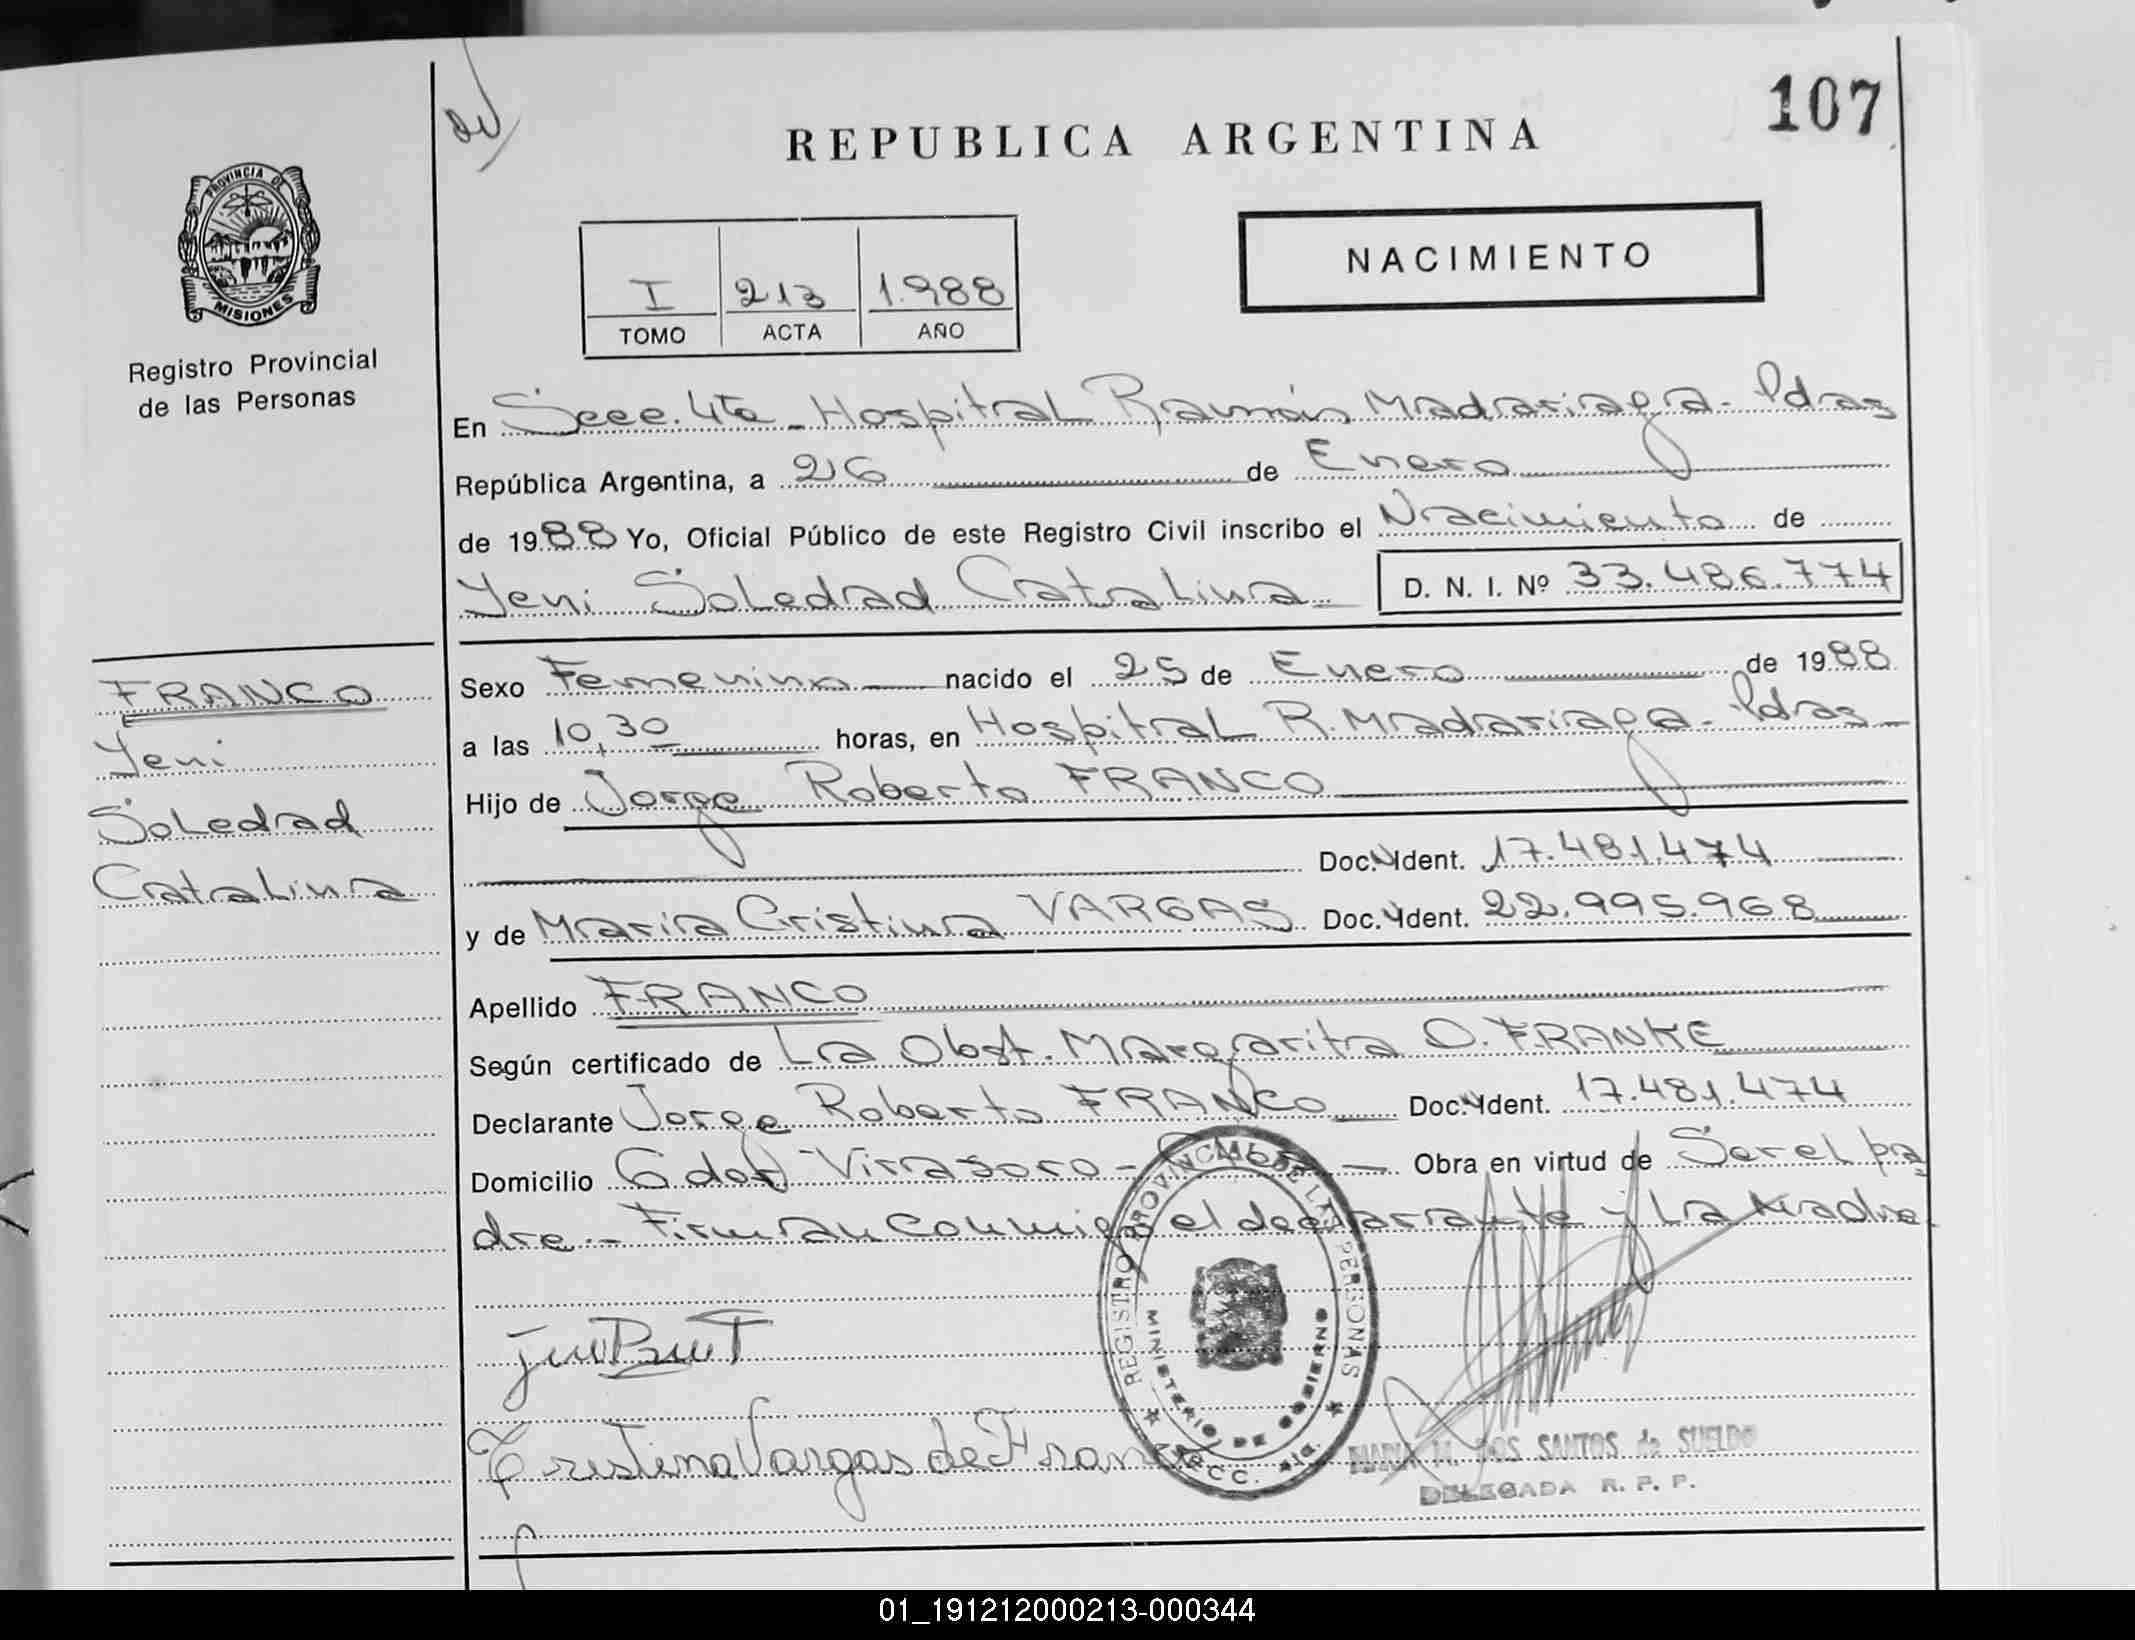 107
REPUBLICA ARGENTINA
PROVINCIA DE
MISIONES
Registro Provincial
de las Personas
NACIMIENTO
I 213 1.988
TOMO ACTA AÑO
En Secc. 4ta - Hospital Ramón Madariaga - Pdas
República Argentina, a 26 de Enero
de 1988 Yo, Oficial Público de este Registro Civil inscribo el Nacimiento de
Yeni Soledad Catalina D. N. I. Nº 33.486.774
FRANCO
Yeni
Soledad
Catalina
Sexo Femenino nacido el 25 de Enero de 1988
a las 10,30 horas, en Hospital R. Madariaga - Pdas
Hijo de Jorge Roberto FRANCO
Doc. N Ident. 17.481.474
y de Maria Cristina VARGAS Doc. N Ident. 22.995.968
Apellido FRANCO
Según certificado de La Obst. Margarita O. FRANKE
Declarante Jorge Roberto FRANCO Doc. N Ident. 17.481.474
Domicilio Gdor Virasoro - Obra en virtud de Ser el pa
dre - Firman conmigo el declarante y La Madre.
REGISTRO PROVINCIAL DE LAS PERSONAS
MINISTERIO DE GOBIERNO
Cristina Vargas de Franco
MARIA M. DOS SANTOS de SUELDO
DELEGADA R. P. P.
01_191212000213-000344